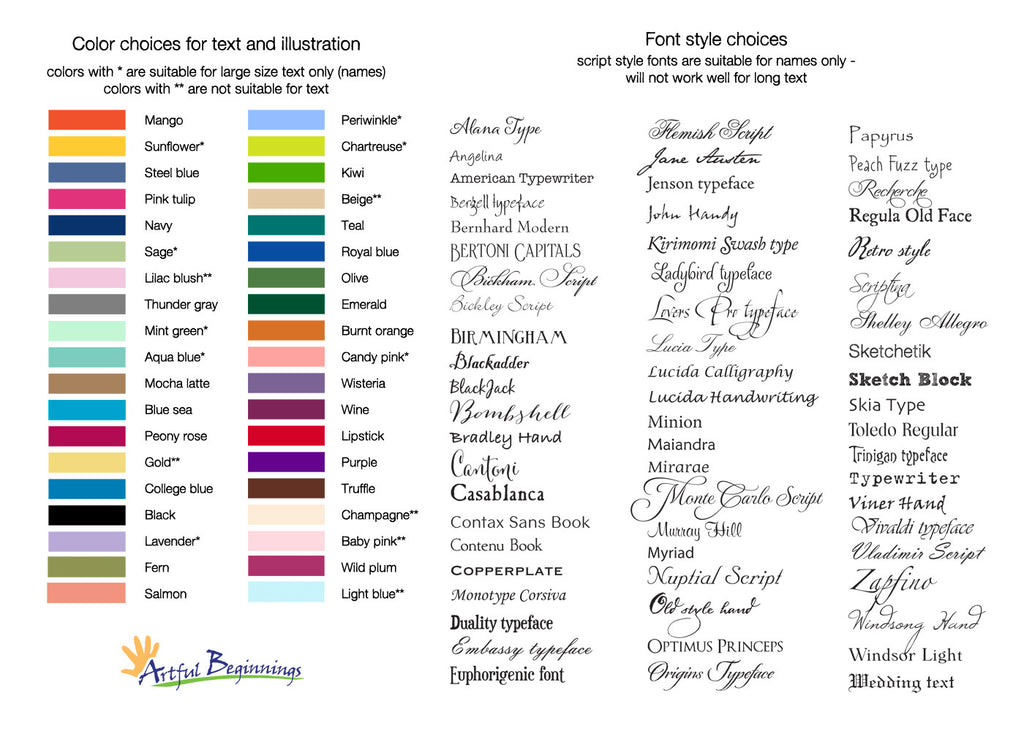 Color choices for text and illustration
colors with * are suitable for large size text only (names)
colors with ** are not suitable for text
Mango
Sunflower*
Steel blue
Pink tulip
Navy
Sage*
Lilac blush**
Thunder gray
Mint green*
Aqua blue*
Mocha latte
Blue sea
Peony rose
Gold**
College blue
Black
Lavender*
Fern
Salmon
Periwinkle*
Chartreuse*
Kiwi
Beige**
Teal
Royal blue
Olive
Emerald
Burnt orange
Candy pink*
Wisteria
Wine
Lipstick
Purple
Truffle
Champagne**
Baby pink**
Wild plum
Light blue**
Artful Beginnings
Font style choices
script style fonts are suitable for names only -
will not work well for long text
Alana Type
Angelina
American Typewriter
Berzell typeface
Bernhard Modern
BERTONI CAPITALS
Bickham Script
Bickley Script
BIRMINGHAM
Blackadder
BlackJack
Bombshell
Bradley Hand
Cantoni
Casablanca
Contax Sans Book
Contenu Book
COPPERPLATE
Monotype Corsiva
Duality typeface
Embassy typeface
Euphorigenic font
Flemish Script
Jane Austen
Jenson typeface
John Handy
Kirimomi Swash type
Ladybird typeface
Lovers Pro typeface
Lucia Type
Lucida Calligraphy
Lucida Handwriting
Minion
Maiandra
Mirarae
Monte Carlo Script
Murray Hill
Myriad
Nuptial Script
Old style hand
OPTIMUS PRINCEPS
Origins Typeface
Papyrus
Peach Fuzz type
Recherche
Regula Old Face
Retro style
Scriptina
Shelley Allegro
Sketchetik
Sketch Block
Skia Type
Toledo Regular
Trinigan typeface
Typewriter
Viner Hand
Vivaldi typeface
Vladimir Script
Zapfino
Windsong Hand
Windsor Light
Wedding text